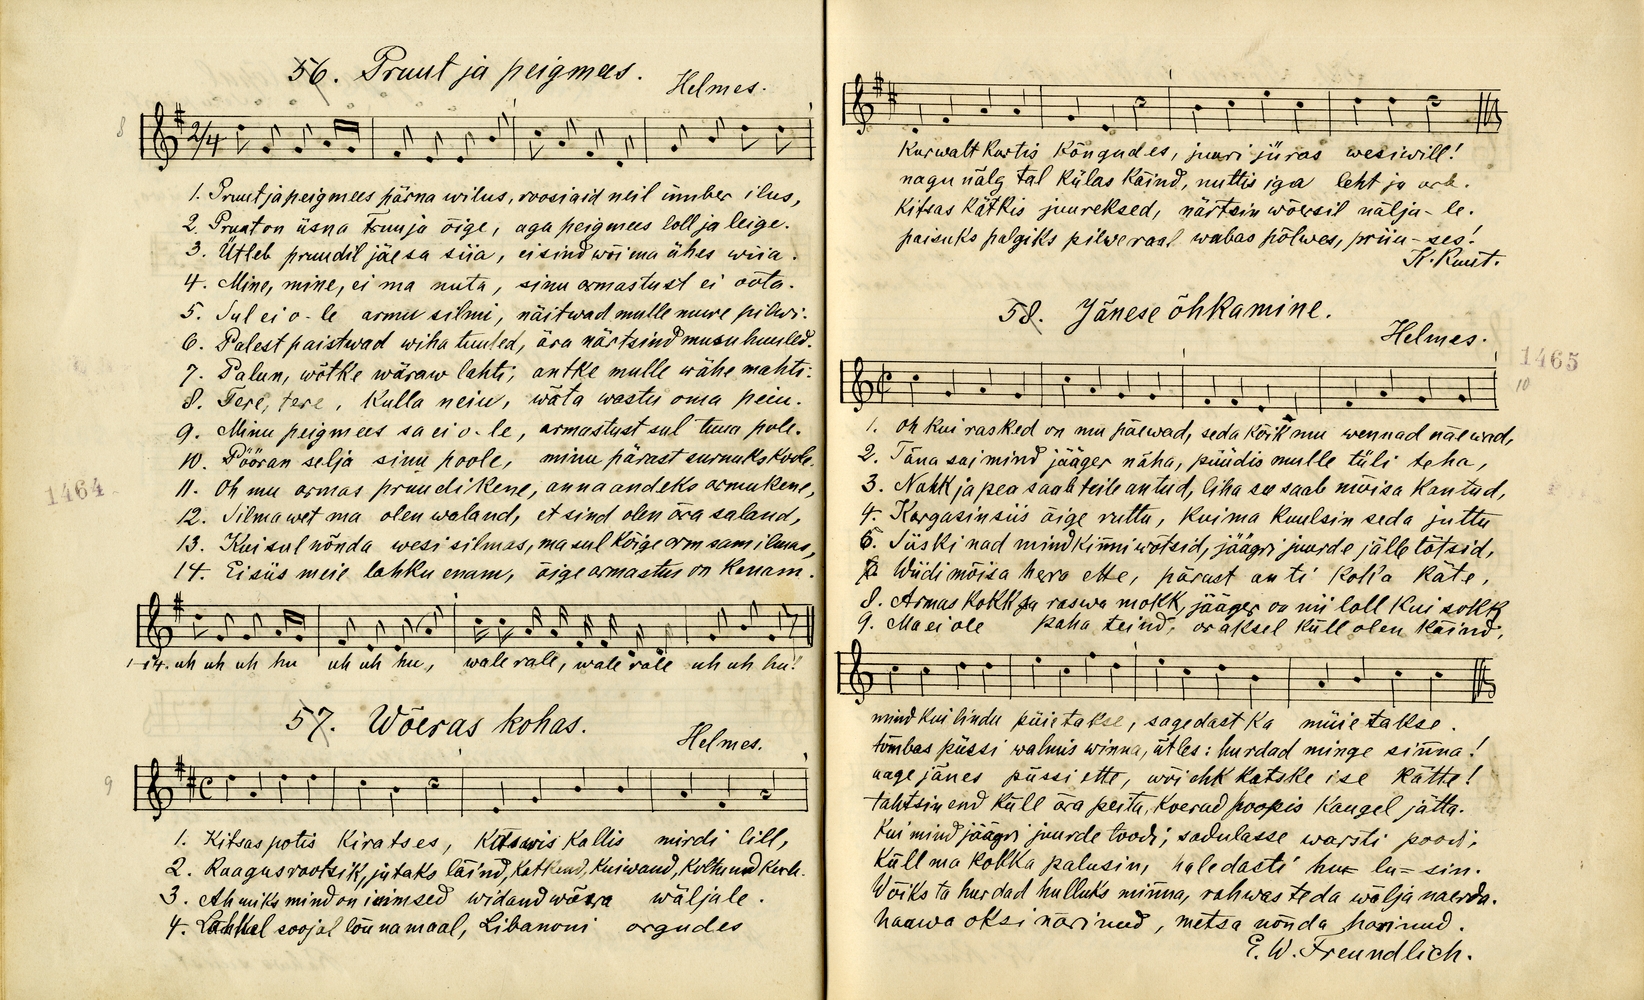 56. Pruut ja peigmees.
Helmes.
8
2/4
1. Pruut ja peigmees pärna wilus, roosiaid neil ümber ilus,
2. Pruut on üsna truu ja õige, aga peigmees loll ja leige.
3. Ütleb pruudil jäe sa siia, ei sind wõi ma ühes wiia.
4. Mine, mine, ei ma nuta, sinu armastust ei oota.
5. Sul ei o-le armu silmi, näitwad mulle nuure pilwi.
6. Palest paistwad wiha tuuled, ära närtsind musu huuled.
7. Palun, wõtke wäraw lahti, antke mulle wähe mahti.
8. Tere, tere, kulla neiu, wõta wastu oma peiu.
9. Minu peigmees sa ei o-le, armastust sul tuua pole.
10. Pööran selja sinu poole, minu pärast surnuks koole.
11. Oh mu armas pruudikene, anna andeks armukene,
12. Silmawet ma olen waland, et sind olen ära saland,
13. Kui sul nõnda wesi silmas, ma sul kõige arm sam ilmas,
14. Ei siis meie lahku enam, õige armastus on kenam.
1-14. uh uh uh hu uh uh hu, wale rale, wale rale uh uh hu!
1464
57. Wõeras kohas.
Helmes.
9
1. Kitsas potis kiratses, kallis mirdi lill,
2. Raagus rootsik, jutaks läind, katkend, kuiwand,
3. Ah miks mind on inimsed widand wäljale.
4. soojal lõunamaal, Libanoni orgudes
kurwalt kurtis kõngudes, juuri jüras wesiwill!
nagu nälg tal külas käind, nuttis iga leht ja
kitsas kätkis juureksed, närtsin wõersil nälja-le.
paisuks palgiks pilwe rasl wabas põlwes, priiu-ses!
K. Ruut.
58. Jänese õhkamine.
Helmes.
1465
10
1. Oh kui rasked on mu päewad, seda kõik mu wennad näewad,
2. Täna sai mind jääger näha, püüdis mulle tüli teha,
3. Nahk ja pea saab teile antud, liha see saab mõisa kantud,
4. Kargasin siis õige ruttu, kui ma kuulsin seda juttu
6. Siiski nad mind kinni wõtsid, jäägri juurde jälle tõtsid,
Wiidi mõisa herra ette, pärast anti koka käte,
8. Armas kokk sa raswa mokk, jääger on nii loll kui sokk
9. Ma ei ole paha teind, oraksel küll olen käind,
mind kui lindu püietakse, sagedast ka müietakse.
tõmbas püssi walmis winna, ütles: hurdad minge sinna!
aage jänes püssi ette, wõi ehk katske ise kätte!
tahtsin end küll ära peita, koerad hoopis kaugel jätta.
Kui mind jäägri juurde toodi, sadulasse warsti poodi,
küll ma kokka palusin, haledasti hu- lu-sin.
Wõiks ta hurdad hulluks minna, rahwas teda wälja naerda.
haawa oksi närinud, metsa nõnda harinud.
E. W. Freundlich.